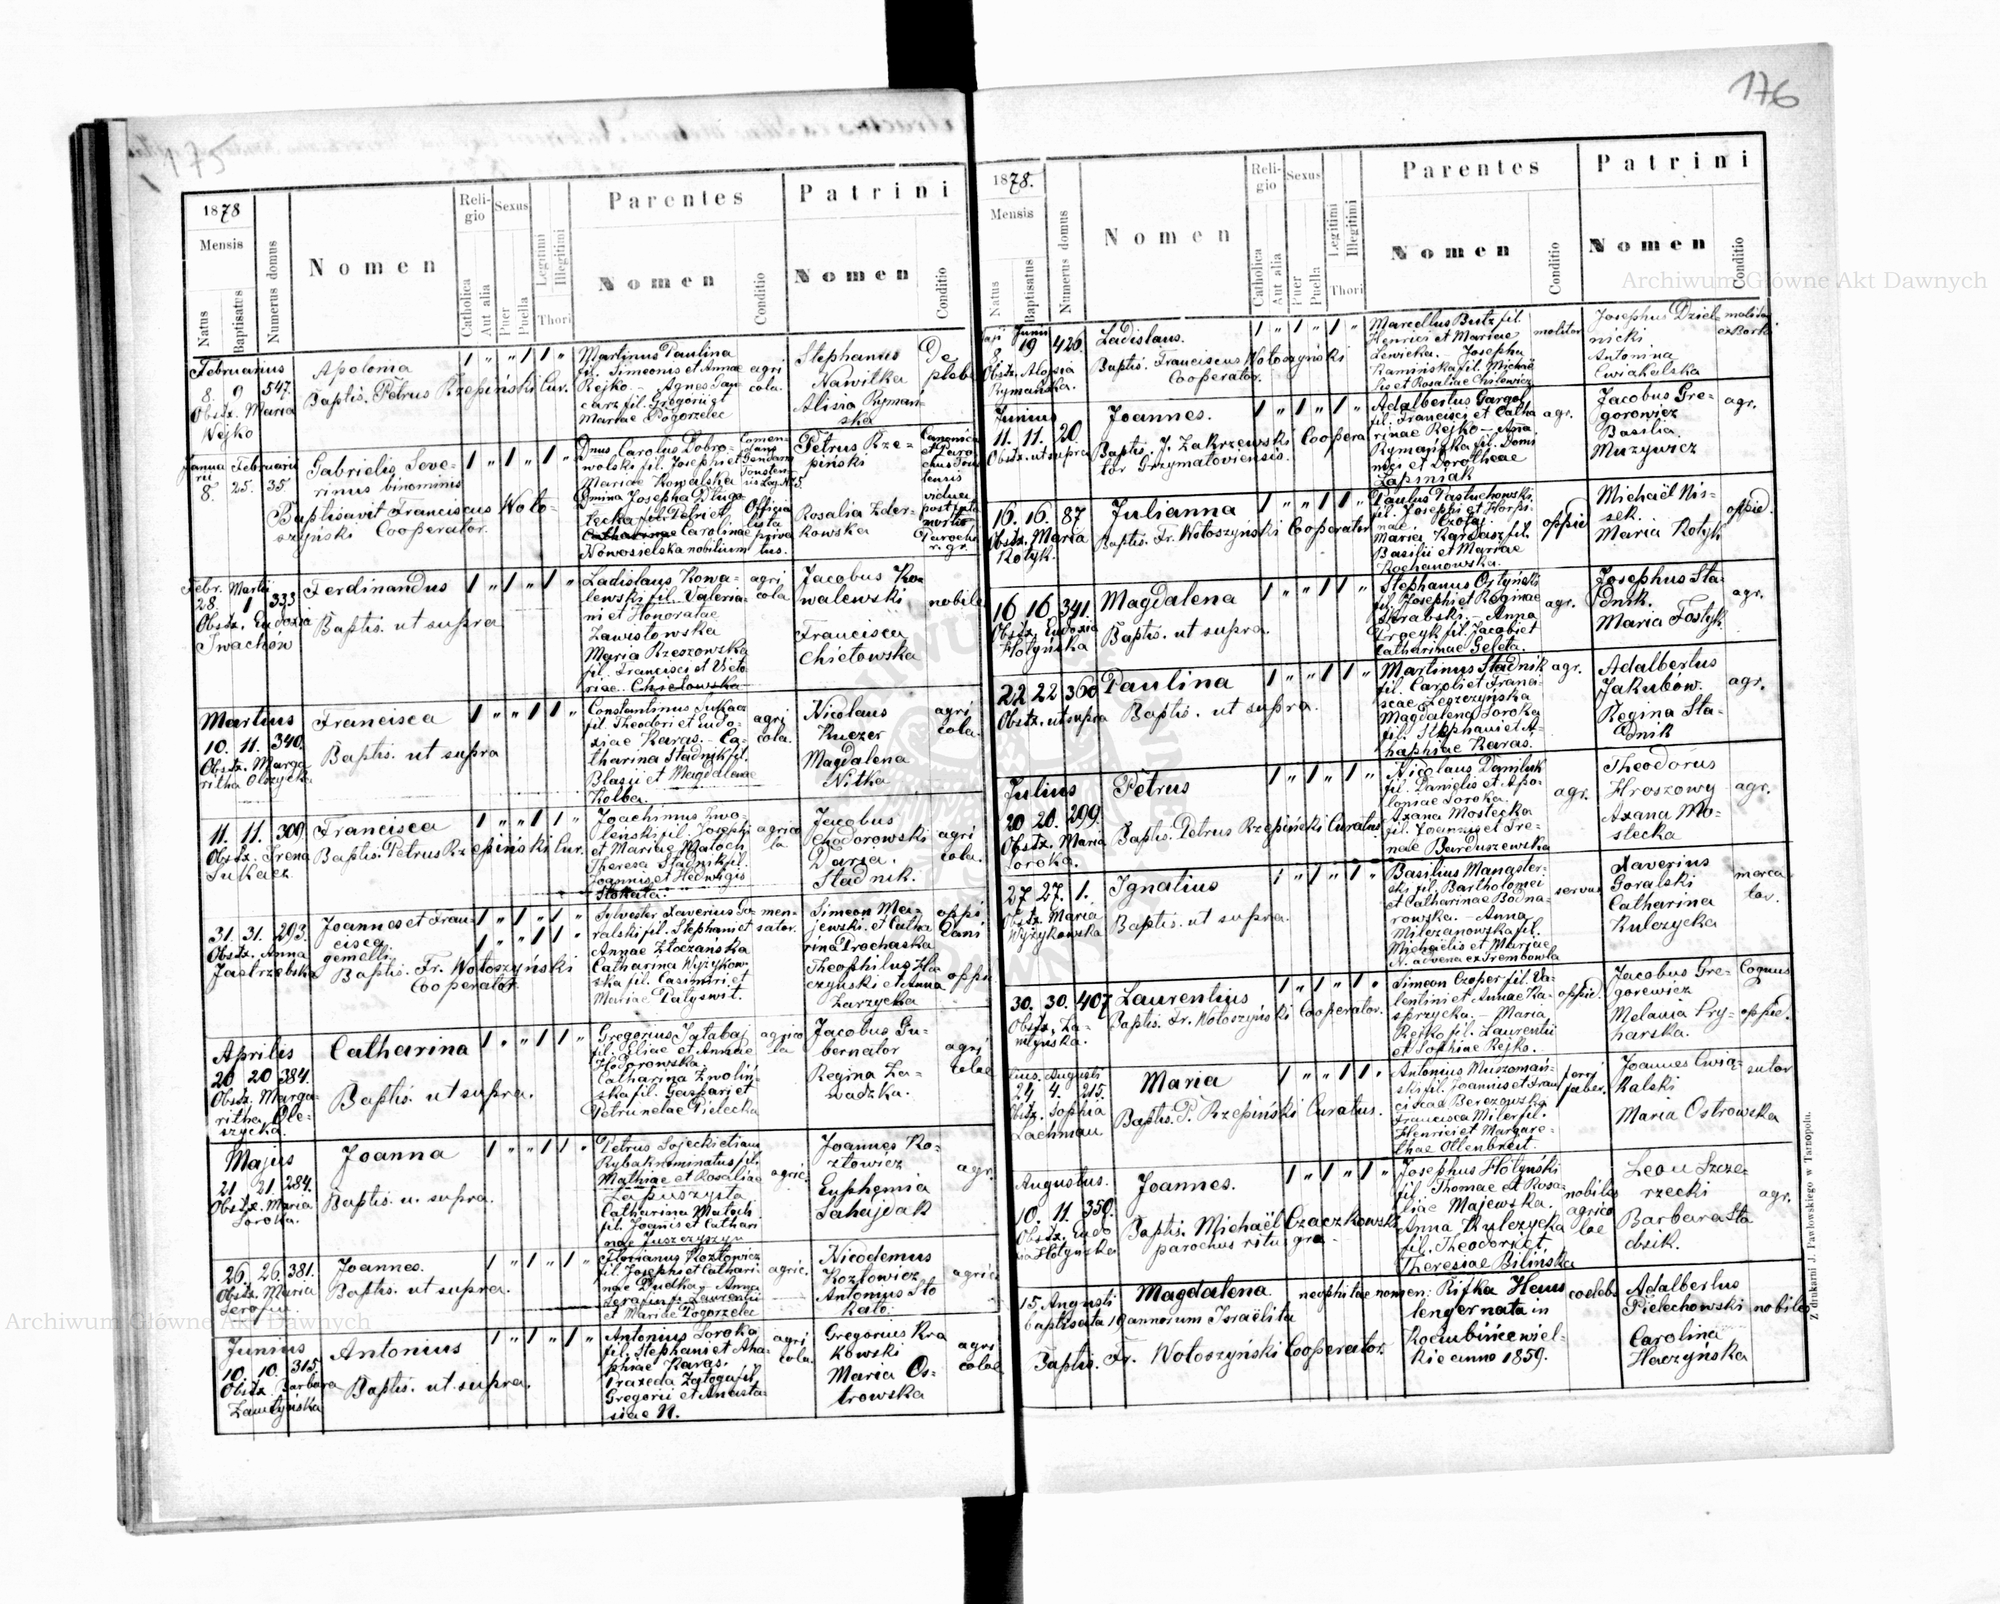 175
1878
Mensis
Natus
Baptisatus
Numerus domus
Nomen
Religio
Catholica
Aut alia
Sexus
Puer
Puella
Legitimi
Illegitimi
Thori
Parentes
Nomen
Conditio
Patrini
Nomen
Conditio
Februarius
8. 9 547.
Obstz. Maria
Rejko
Apolonia
Baptis. Petrus Rzepiński Cur.
Martinus Paulina
fil. Simeonis et Annae
Rejko. - Agnes
fil. Gregorii et
Mariae Pogorzelec
agri
cola.
Stephanus
Nawilka
Alisia Ryman-
ska
De
plebe
Janua Februarii
rii
8. 25. 35
Gabrielis Seve-
rinus binominis
Baptisavit Franciscus Woło-
szyński Cooperator.
Dnus Carolus Dobro-
wolski fil. Josephi et
Mariae Kowalska
Dmina Josepha Długo-
łecka fil. Petri et
Catharinae Carolinae
Nowosielska nobilium
Officia
lista
priva
tus.
Petrus Rze-
piński
Rosalia Zder-
kowska
Febr. Martii
28. 1 333
Obstz. Eudoxia
Iwachów
Ferdinandus
Baptis. ut supra
Ladislaus Kowa-
lewski fil. Valeria-
ni et Honoratae
Zawistowska
Maria Rzeszowska
fil. Francisci et Victo
riae Chietowska
agri
cola
Jacobus Ko-
walewski
Francisca
Chietowska
nobile
Martius
10. 11. 340.
Obstz. Marga
ritha Olszycka
Francisca
Baptis. ut supra
Constantinus Sukacz
fil. Theodori et Eudo-
xiae Karas. - Ca-
tharina Stadnik fil.
Blasii et Magdalenae
Kolba.
agri
cola.
Nicolaus
Kuczer
Magdalena
Nitka
agri
cola.
11. 11. 309.
Obstz. Irena
Sukacz
Francisca
Baptis. Petrus Rzepiński Cur.
Joachimus Zwo-
leński fil. Josephi
et Mariae Matoch
Theresa Stadnik fil.
Joannis et Hedwigis
agrico
la
Jacobus
Chodorowski
Daria.
Stadnik.
agri
cola.
31. 31. 293.
Obstz. Anna
Jastrzębska
Joannes et Fran-
cisca
gemelli.
Baptis. Fr. Wołoszyński
Cooperator.
Sylvester Xaverius Go-
ralski fil. Stephani et
Annae Złoczańska
Catharina Wyżykow
ska fil. Casimiri et
Mariae Patyswit.
men-
sator.
Simeon Ma-
jewski. et Catha
rina Prochaska
Theophilus Ha
czyński et Anna
Zarzycka
oppi
dani
oppi
Aprilis
20 20 384.
Obstz. Marga
ritha Ole-
szycka.
Catharina
Baptis. ut supra.
Gregorius Jataba
fil. Eliae et Annae
Hodorowska.
Catharina Zwoliń-
ska fil. Gaspari et
Petrunelae Pielecka
agrico
la
Jacobus Gu-
bernator
Regina Za-
wadzka.
agri
colae
Majus
21 21. 284.
Obstz. Maria
Soroka.
Joanna
Baptis. u. supra.
Petrus Sojecki etiam
Rybak nominatus fil.
Mathiae et Rosaliae
Łapuszysta
Catharina Matoch
fil. Joanis et Cathari
nae Juszczyszyn
agric.
Joannes Ko-
złowicz
Euphemia
Sahajdak
agr.
26. 26. 381.
Obstz. Maria
Serafin.
Joannes.
Baptis. ut supra.
Florianus Kozłowicz
fil Josephi et Cathari
nae Dudka - Anna
Serafin fil. Laurentii
et Mariae Pogorzelec
agric.
Nicodemus
Kozłowicz
Antonius Sto
kato.
agric
Junius
10. 10. 315.
Obstz. Barbara
Zamłyńska
Antonius
Baptis. ut supra.
Antonius Soroka
fil. Stephani et Aha
phiae Karas.
Praxeda Załoga fil.
Gregorii et Anasta-
siae N.
agri
cola.
Gregorius Kra
kowski
Maria Os-
trowska
agri
colae
176
1878.
Mensis
Natus
Baptisatus
Numerus domus
Nomen
Religio
Catholica
Aut alia
Sexus
Puer
Puella
Legitimi
Illegitimi
Thori
Parentes
Nomen
Conditio
Patrini
Nomen
Conditio
Maji Junii
8 19 426.
Obstz. Aloysia
Rymańska.
Ladislaus.
Baptis. Franciscus Wołoszyński
Cooperator.
Marcellus Butz fil.
Henrici et Mariae
Lewicka. - Josepha
Kamińska fil. Michaë
lis et Rosaliae Chilewicz
molitor
Josephus Dziel-
nicki
Antonina
Cwiakalska
molitor
ex Borki
Junius
11. 11. 20.
Obstz. ut supra
Joannes.
Baptis. J. Zakrzewski Coopera
tor Grzymałoviensis.
Adalbertus Gargol
fil. Francisci et Catha
rinae Rejko - Anna
Rymańska fil. Domi
nici et Dorotheae
Łapiniak
agr.
Jacobus Gre-
gorowicz
Basilia
Muzywicz
agr.
16. 16. 87
Obstz. Maria
Kotyk.
Julianna
Baptis. Fr. Wołoszyński Cooperator
Paulus Pastuchowski
fil. Josephi et Horpi-
nae.
Maria Kardasz fil.
Basilii et Mariae
Kochanowska.
oppid
Michaël Nis-
sek.
Maria Kotyk
oppid.
16 16 341.
Obstz. Eudoxia
Hołyńska
Magdalena
Baptis. ut supra.
Stephanus Ostyński
fil. Josephi et Reginae
Skrabski. - Anna
Procyk fil. Jacobi et
Catharinae Geleta.
agr.
Josephus Sta-
dnik.
Maria Fostyk
agr.
22 22 360
Obstz. ut supra
Paulina
Baptis. ut supra.
Martinus Stadnik
fil. Caroli et Franci
scae Leszczyńska
Magdalena Soroka
fil. Stephani et A-
haphiae Karas.
agr.
Adalbertus
Jakubów.
Regina Sta-
dnik
agr.
Julius
20 20. 299.
Obstz. Maria
Soroka.
Petrus
Baptis. Petrus Rzepiński Curatus.
Nicolaus Daniluk
fil. Danielis et Apo-
loniae Soroka.
Axana Mostecka
fil. Joannis et Ire-
nae Barduszewska
agr.
Theodorus
Hroszowy
Axana Mo-
stecka
agr.
27 27. 1.
Obstz. Maria
Wyżykowska
Ignatius
Baptis. ut supra.
Basilius Mangster-
ski fil. Bartholomei
et Catharinae Bodna-
rowska. - Anna
Milczanowska fil.
Michaëlis et Mariae
N. advena ex Trembowla
servus
Xaverius
Goralski
Catharina
Kulczycka
merca
tor.
30. 30. 407
Obstz. Za-
młyńska.
Laurentius
Baptis. Fr. Wołoszyński Cooperator.
Simeon Czoper fil. Va-
lentini et Annae Ka-
sprzycka. - Maria
Rejko fil. Laurentii
et Sophiae Rejko.
oppid.
Jacobus Gre-
gorewicz
Melania Pry-
harska.
Coquus
oppid.
Augusti
24 4. 215.
Obstz. Sophia
Lachman
Maria
Baptis. P. Rzepiński Curatus.
Antonius Muszomań-
ski fil. Joannis et Fran
ciscae Berezowska
Francisca Miler fil.
Henrici et Margare-
thae Ollenbreit.
ferri
faber.
Joannes Cwią-
kalski
Maria Ostrowska
sutor
Augustus.
10. 11. 350.
Obstz. Eudo
xia Hołyńska
Joannes.
Baptis. Michaël Czaczkowski
parochus ritus gra-
Josephus Hołyński
fil. Thomae et Rosa-
liae Majewska.
Anna Kulczycka
fil. Theodori et
Theresiae Bilińska
nobiles
agrico
lae
Leon Szcze-
rzecki
Barbara Sta
dnik.
agr.
15. Augusti
baptisata 19 annorum Israëlita
Magdalena neophitae nomen: Rifka Heus
lenger nata in
Kociubińce wiel-
kie anno 1859.
Baptis. Fr. Wołoszyński Cooperator.
coelebs
Adalbertus
Pielechowski
Carolina
Haczyńska
nobiles
Z drukarni J. Pawłowskiego w Tarnopolu.
Archiwum Główne Akt Dawnych
Archiwum Główne Akt Dawnych